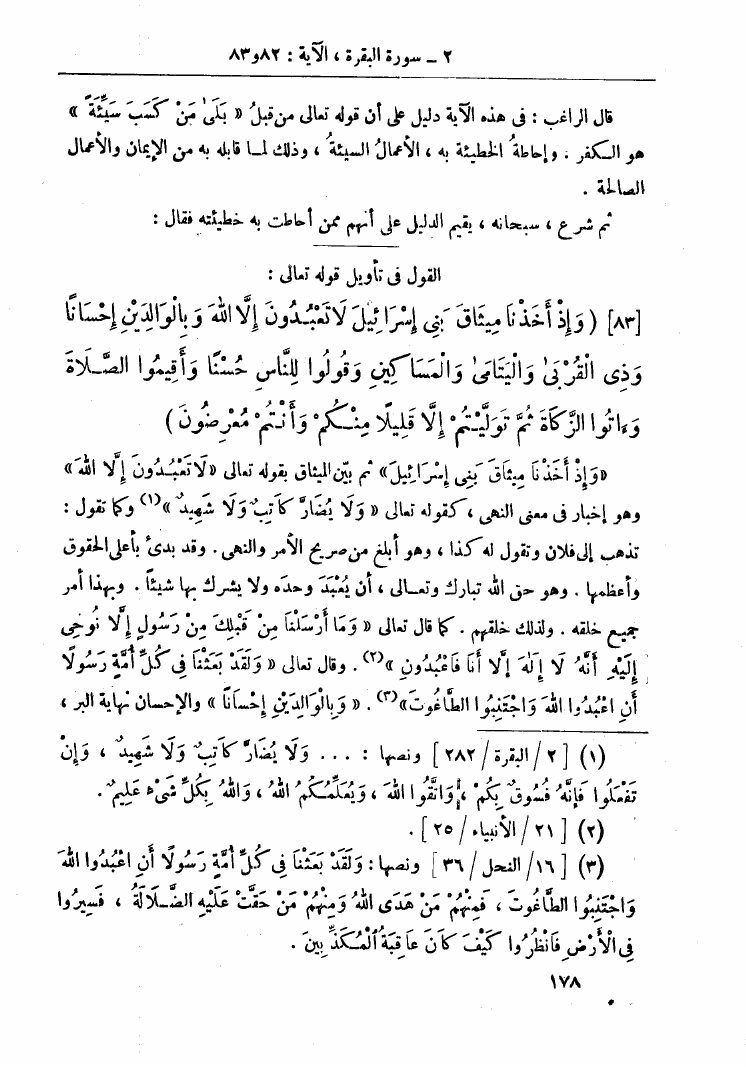 ٢ – سورة البقرة ، الآية : ٨٢و٨٣
قال الراغب : فى هذه الآية دليل على أن قوله تعالى من قبلُ « بَلَىٰ مَنْ كَسَبَ سَيِّئَةً »
هو الكفر . وإحاطةُ الخطيئة به ، الأعمالُ السيئةُ ، وذلك لما قابله به من الإيمان والأعمال
الصالحة .
ثم شرع ، سبحانه ، يقيم الدليل على أنهم ممن أحاطت به خطيئته فقال :
القول فى تأويل قوله تعالى :
[٨٣] ( وَإِذْ أَخَذْنَا مِيثَاقَ بَنِى إِسْرَائِيلَ لَا تَعْبُدُونَ إِلَّا اللهَ وَبِالْوَالِدَيْنِ إِحْسَانًا
وَذِى الْقُرْبَىٰ وَالْيَتَامَىٰ وَالْمَسَاكِينِ وَقُولُوا لِلنَّاسِ حُسْنًا وَأَقِيمُوا الصَّلَاةَ
وَءَاتُوا الزَّكَاةَ ثُمَّ تَوَلَّيْتُمْ إِلَّا قَلِيلًا مِنْكُمْ وَأَنْتُمْ مُعْرِضُونَ )
«وَإِذْ أَخَذْنَا مِيثَاقَ بَنِى إِسْرَائِيلَ» ثم بيّن الميثاق بقوله تعالى «لَا تَعْبُدُونَ إِلَّا اللهَ»
وهو إخبار فى معنى النهى ، كقوله تعالى « وَلَا يُضَارَّ كَاتِبٌ وَلَا شَهِيدٌ »(١) وكما تقول :
تذهب إلى فلان وتقول له كذا ، وهو أبلغ من صريح الأمر والنهى . وقد بدئ بأعلى الحقوق
وأعظمها . وهو حق الله تبارك وتعالى ، أن يُعْبَدَ وحدَه ولا يشرك بها شيئاً . وبهذا أمر
جميع خلقه . ولذلك خلقهم . كما قال تعالى « وَمَا أَرْسَلْنَا مِنْ قَبْلِكَ مِنْ رَسُولٍ إِلَّا نُوحِى
إِلَيْهِ أَنَّهُ لَا إِلَهَ إِلَّا أَنَا فَاعْبُدُونِ »(٢) . وقال تعالى « وَلَقَدْ بَعَثْنَا فِى كُلِّ أُمَّةٍ رَسُولًا
أَنِ اعْبُدُوا اللهَ وَاجْتَنِبُوا الطَّاغُوتَ»(٣) . « وَبِالْوَالِدَيْنِ إِحْسَانًا » والإحسان نهاية البر ،
(١) [ ٢ / البقرة / ٢٨٢ ] ونصها : ... وَلَا يُضَارَّ كَاتِبٌ وَلَا شَهِيدٌ ، وَإِنْ
تَفْعَلُوا فَإِنَّهُ فُسُوقٌ بِكُمْ ، وَاتَّقُوا اللهَ ، وَيُعَلِّمُكُمُ اللهُ ، وَاللهُ بِكُلِّ شَىْءٍ عَلِيمٌ .
(٢) [ ٢١ / الأنبياء / ٢٥ ] .
(٣) [ ١٦ / النحل / ٣٦ ] ونصها : وَلَقَدْ بَعَثْنَا فِى كُلِّ أُمَّةٍ رَسُولًا أَنِ اعْبُدُوا اللهَ
وَاجْتَنِبُوا الطَّاغُوتَ ، فَمِنْهُمْ مَنْ هَدَى اللهُ وَمِنْهُمْ مَنْ حَقَّتْ عَلَيْهِ الضَّلَالَةُ ، فَسِيرُوا
فِى الْأَرْضِ فَانْظُرُوا كَيْفَ كَانَ عَاقِبَةُ الْمُكَذِّبِينَ .
١٧٨